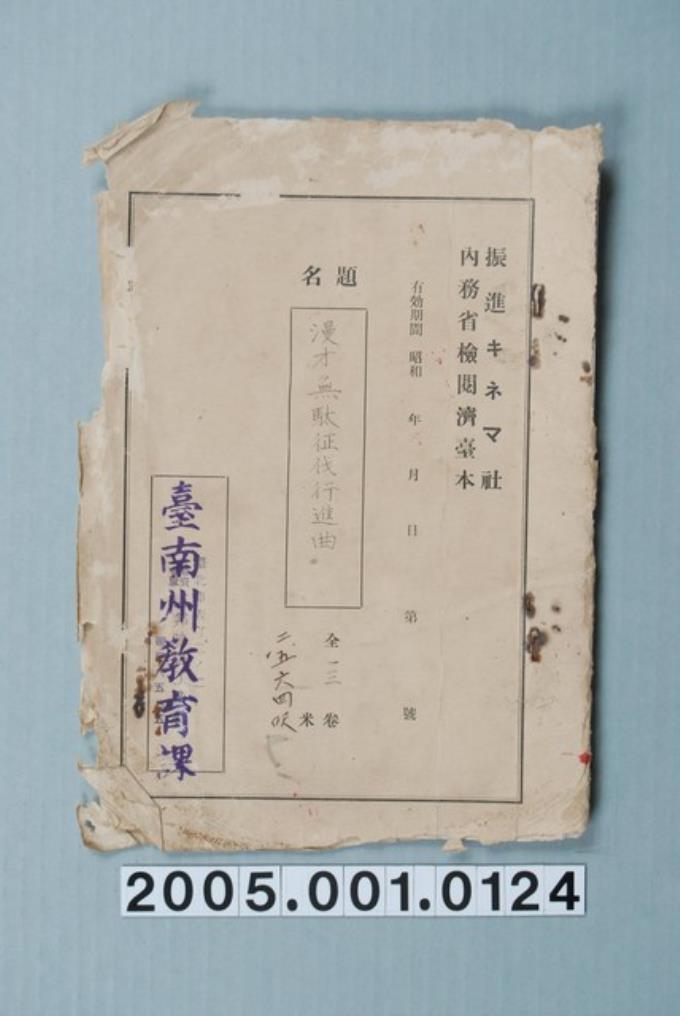 振進キネマ社
內務省檢閱濟臺本
有効期間 昭和 年 月 日 第 號
題名
漫才無駄征伐行進曲。
全三卷
米
二、五六四呎
臺南州教育課
2005.001.0124